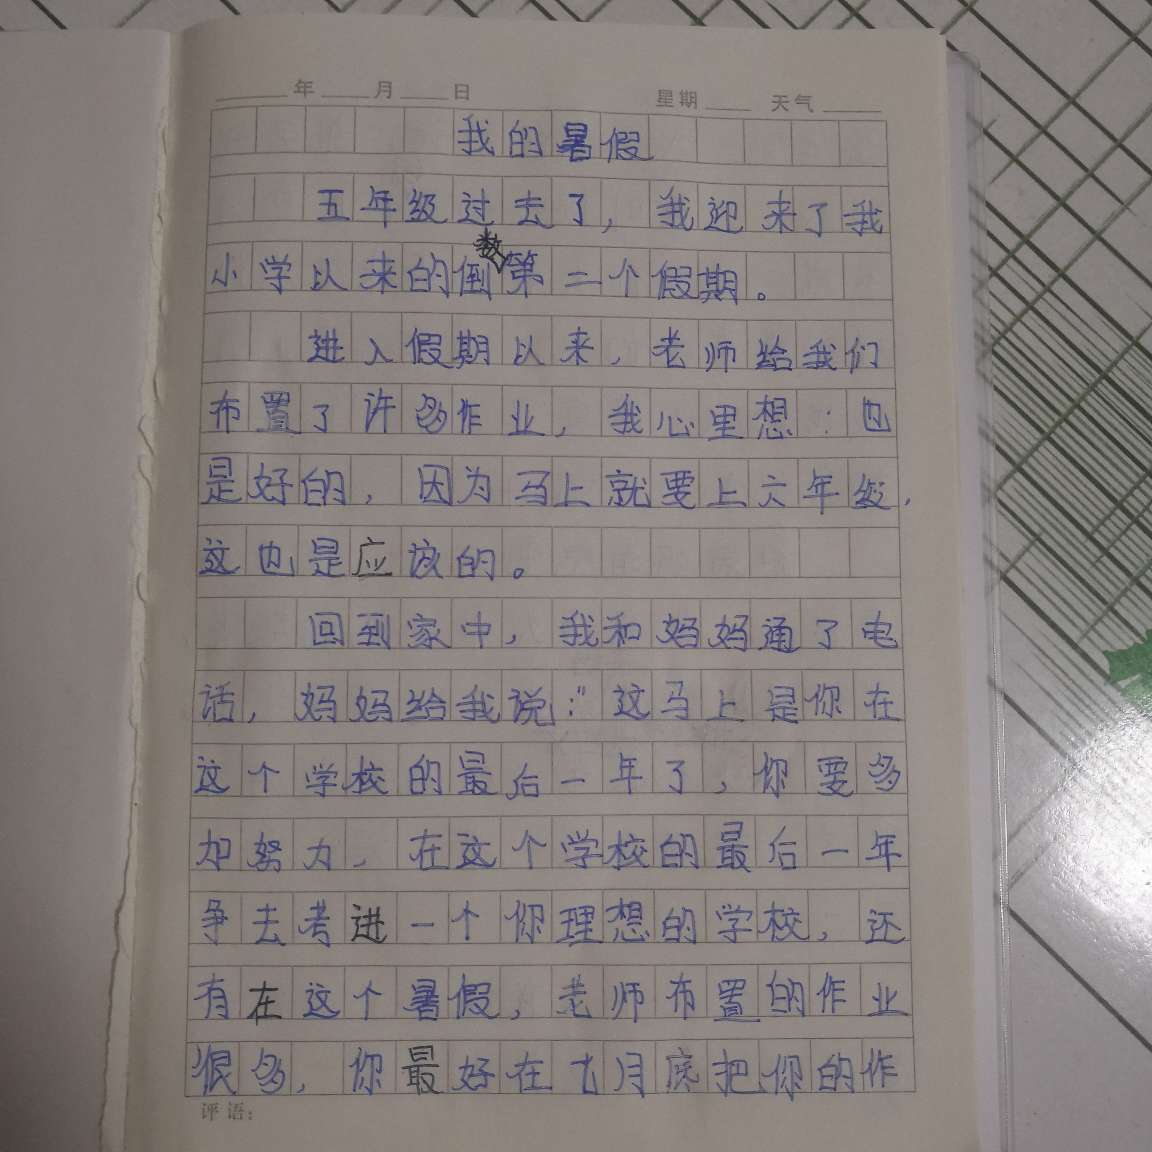 年 月 日 星期 天气
我的暑假
五年级过去了，我迎来了我
小学以来的倒数第二个假期。
进入假期以来，老师给我们
布置了许多作业，我心里想：也
是好的，因为马上就要上六年级，
这也是应该的。
回到家中，我和妈妈通了电
话，妈妈给我说：“这马上是你在
这个学校的最后一年了，你要多
加努力，在这个学校的最后一年
争去考进一个你理想的学校，还
有在这个暑假，老师布置的作业
很多，你最好在七月底把你的作
评语：